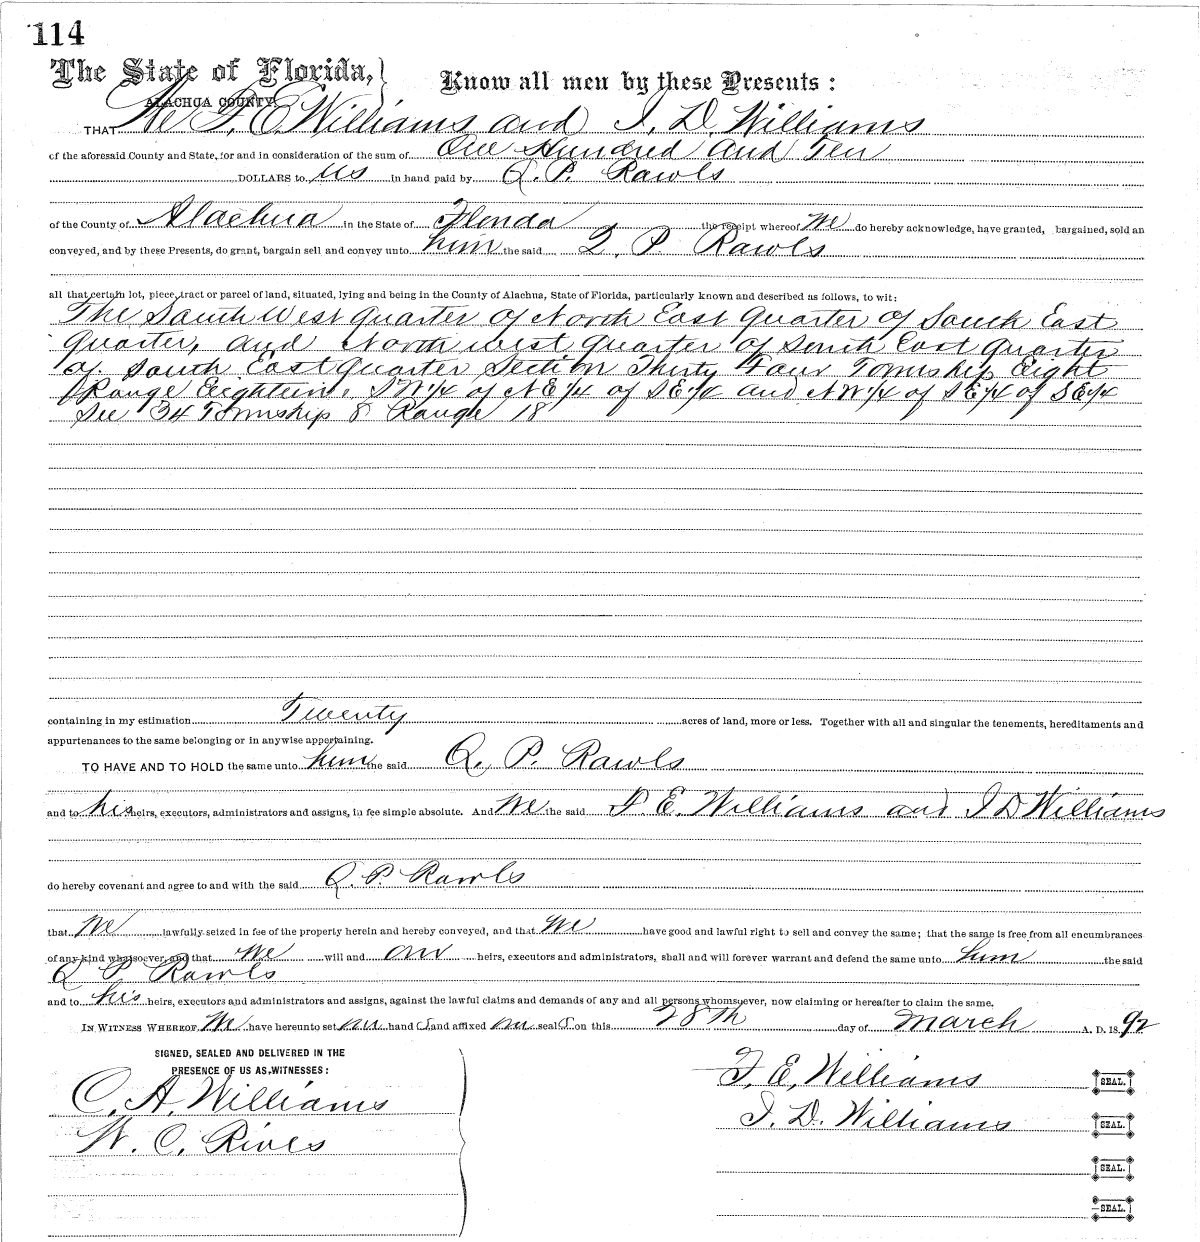 114
The State of Florida, Know all men by these Presents:
ALACHUA COUNTY.
THAT We F. E. Williams and I. D. Williams
of the aforesaid County and State, for and in consideration of the sum of One Hundred and Ten
DOLLARS to us in hand paid by Q. P. Rawls
of the County of Alachua in the State of Florida the receipt whereof We do hereby acknowledge, have granted, bargained, sold an
conveyed, and by these Presents, do grant, bargain sell and convey unto him the said Q. P. Rawls
all that certain lot, piece, tract or parcel of land, situated, lying and being in the County of Alachua, State of Florida, particularly known and described as follows, to wit:
The South West Quarter of North East Quarter of South East
Quarter, and North west Quarter of South East Quarter
of South East Quarter Section Thirty Four Township Eight
Range Eighteen. S W 1/4 of N E 1/4 of S E 1/4 and N W 1/4 of S E 1/4 of S E 1/4
Sec 34 Township 8 Range 18
containing in my estimation Twenty acres of land, more or less. Together with all and singular the tenements, hereditaments and
appurtenances to the same belonging or in anywise appertaining.
TO HAVE AND TO HOLD the same unto him the said Q. P. Rawls
and to his heirs, executors, administrators and assigns, in fee simple absolute. And We the said F. E. Williams and I D Williams
do hereby covenant and agree to and with the said Q. P. Rawls
that We lawfully seized in fee of the property herein and hereby conveyed, and that We have good and lawful right to sell and convey the same; that the same is free from all encumbrances
of any kind whatsoever, and that We will and our heirs, executors and administrators, shall and will forever warrant and defend the same unto him the said
Q P Rawls
and to his heirs, executors and administrators and assigns, against the lawful claims and demands of any and all persons whomsoever, now claiming or hereafter to claim the same.
IN WITNESS WHEREOF We have hereunto set our hand S and affixed our seal S on this 28th day of March A. D. 18 92
SIGNED, SEALED AND DELIVERED IN THE
PRESENCE OF US AS WITNESSES:
C. A. Williams
W. C. Rives
F. E. Williams SEAL.
I. D. Williams SEAL.
SEAL.
SEAL.